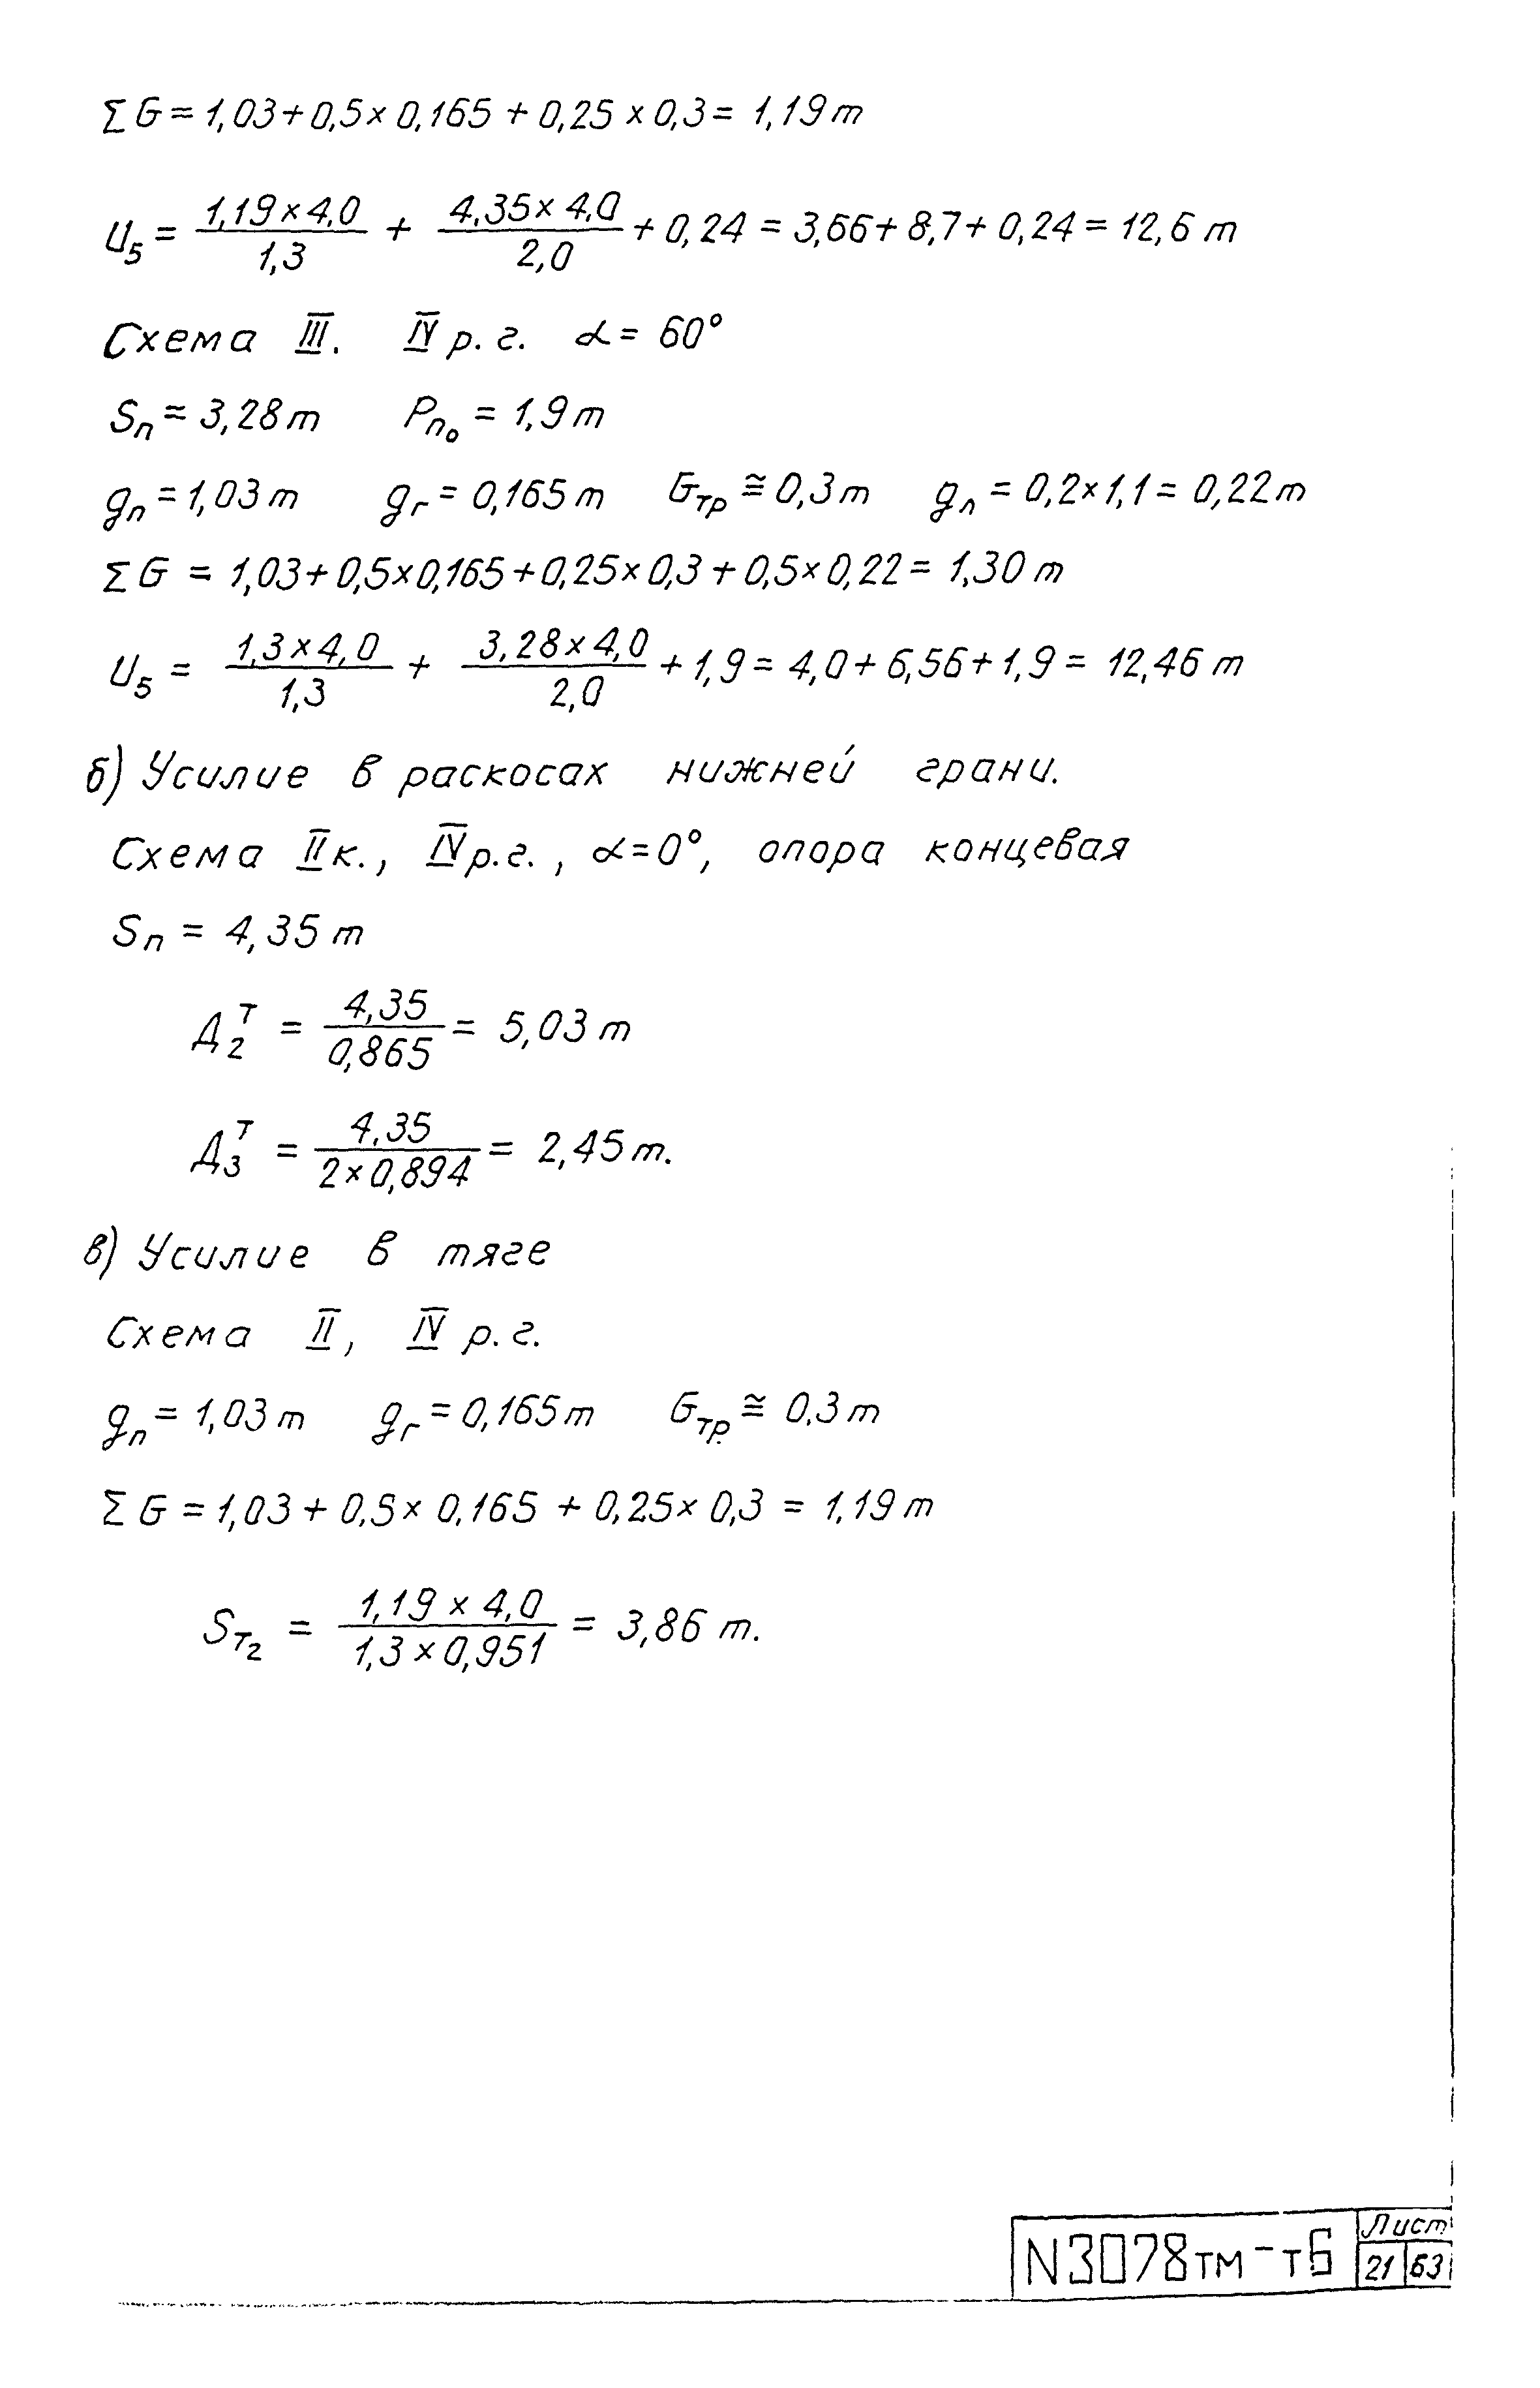 ΣG = 1,03 + 0,5 × 0,165 + 0,25 × 0,3 = 1,19 т
U₅ = (1,19 × 4,0)/1,3 + (4,35 × 4,0)/2,0 + 0,24 = 3,66 + 8,7 + 0,24 = 12,6 т
Схема III. IV р.г. α = 60°
Sп = 3,28 т Pп₀ = 1,9 т
gп = 1,03 т gг = 0,165 т Gтр ≅ 0,3 т gл = 0,2 × 1,1 = 0,22 т
ΣG = 1,03 + 0,5 × 0,165 + 0,25 × 0,3 + 0,5 × 0,22 = 1,30 т
U₅ = (1,3 × 4,0)/1,3 + (3,28 × 4,0)/2,0 + 1,9 = 4,0 + 6,56 + 1,9 = 12,46 т
б) Усилие в раскосах нижней грани.
Схема IIк., IV р.г., α = 0°, опора концевая
Sп = 4,35 т
Д₂ᵀ = 4,35/0,865 = 5,03 т
Д₃ᵀ = 4,35/(2 × 0,894) = 2,45 т.
в) Усилие в тяге
Схема II, IV р.г.
gп = 1,03 т gг = 0,165 т Gтр ≅ 0,3 т
ΣG = 1,03 + 0,5 × 0,165 + 0,25 × 0,3 = 1,19 т
Sт₂ = (1,19 × 4,0)/(1,3 × 0,951) = 3,86 т.
N3078тм-т6
Лист
21 63